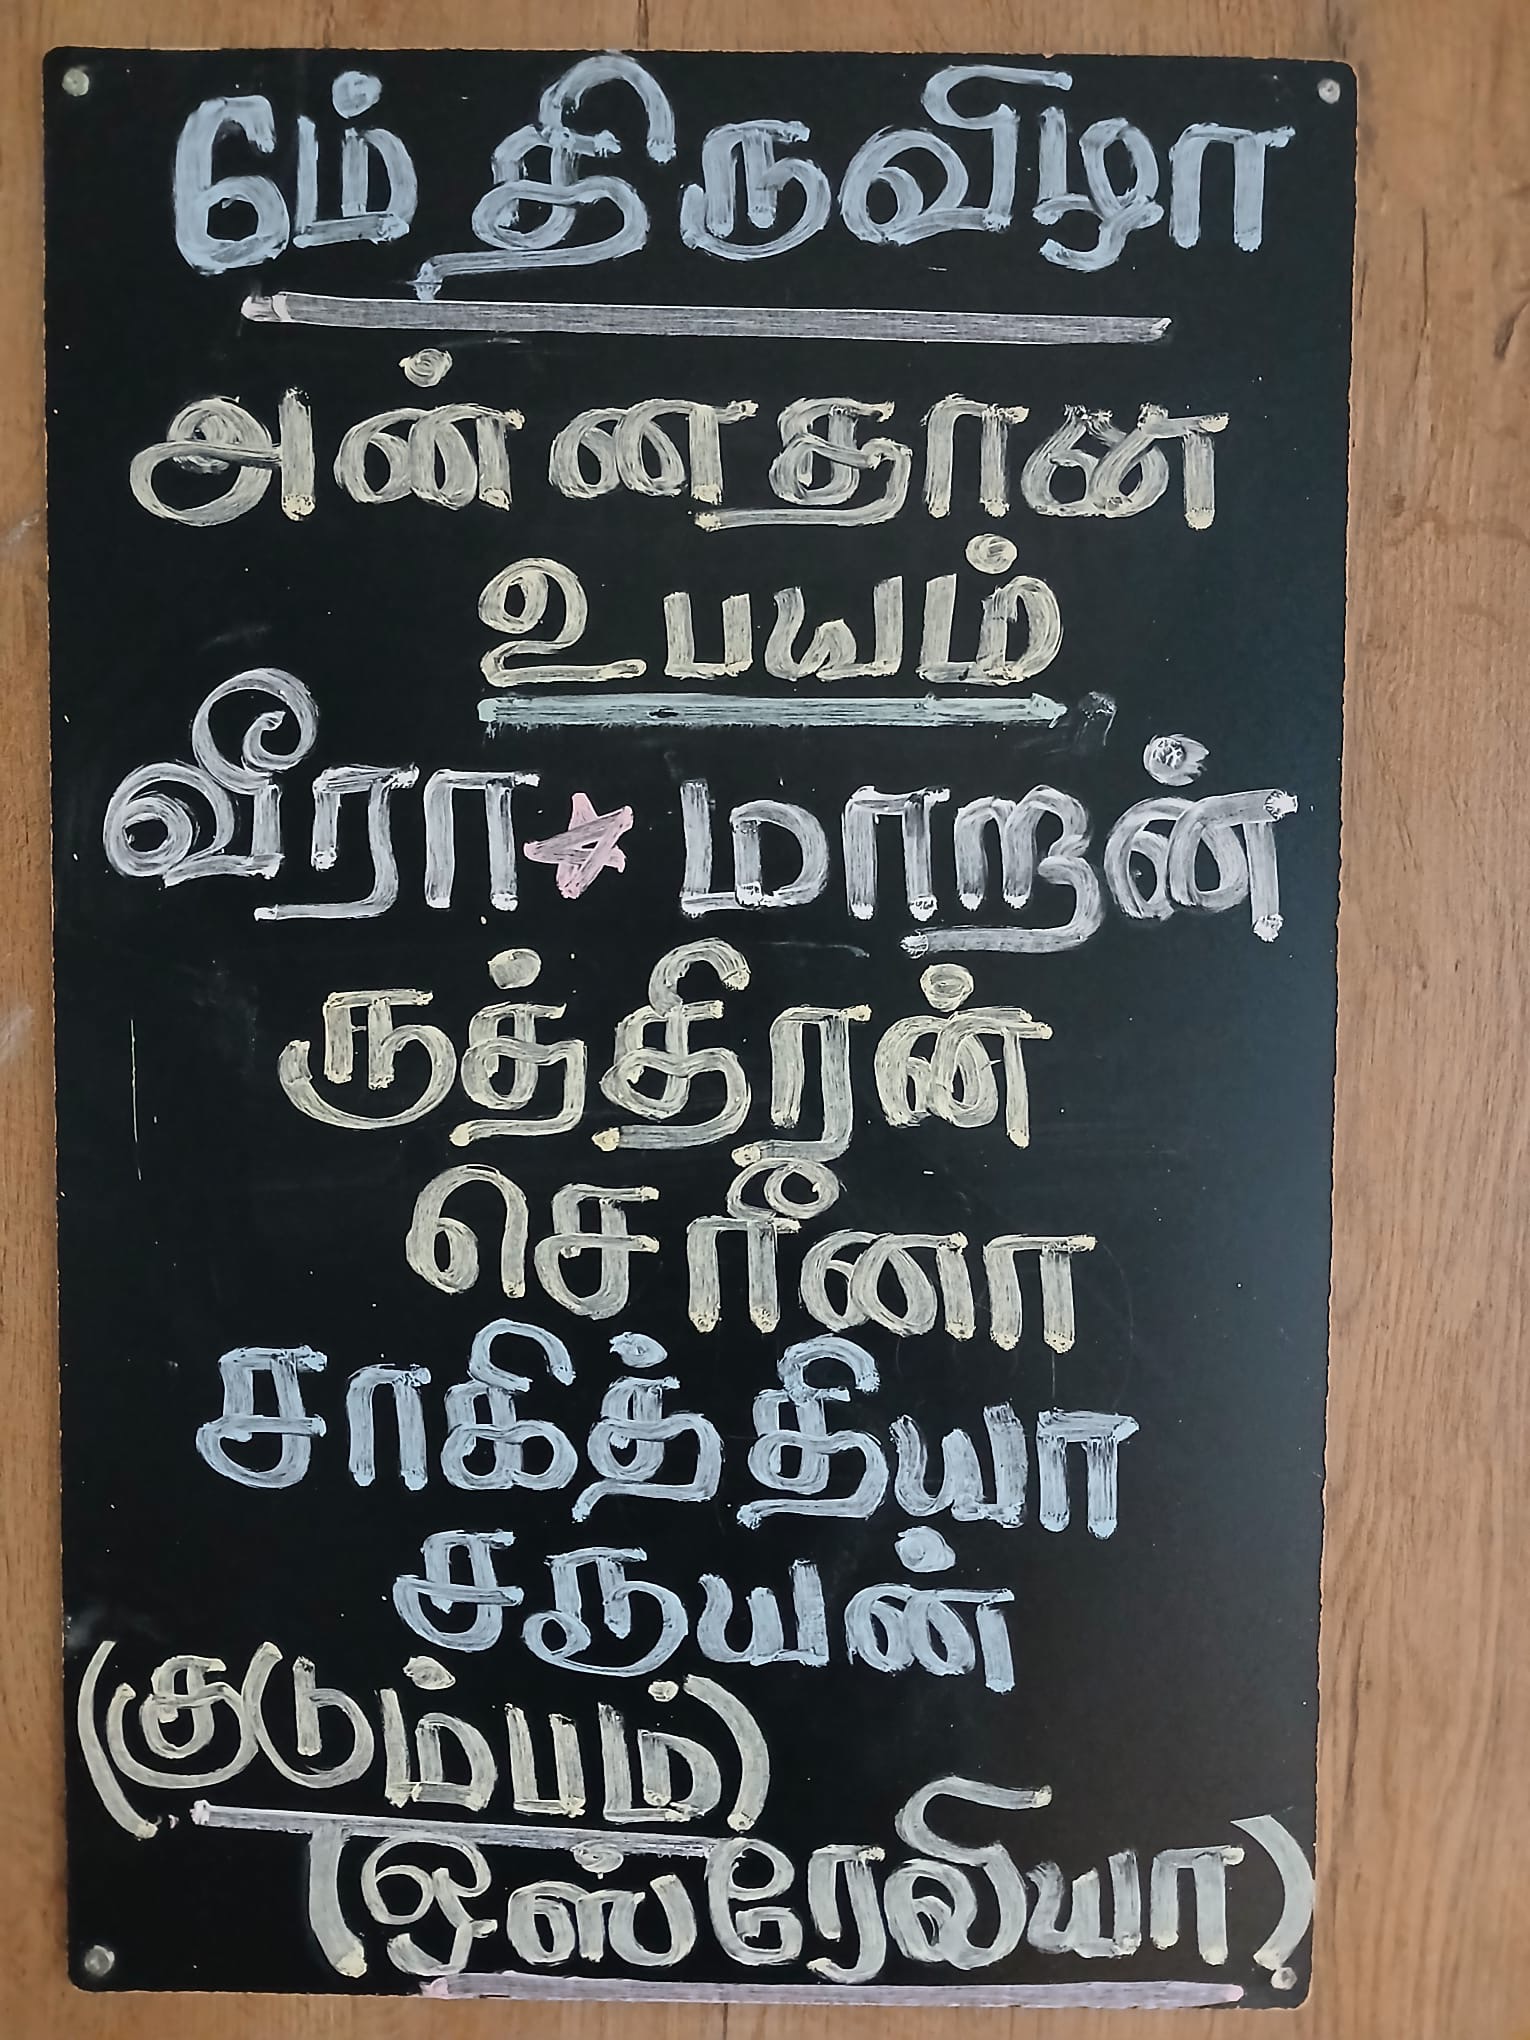 6ம் திருவிழா
அன்னதான
உபயம்
வீரா★மாறன்
ருத்திரன்
செரீனா
சாகித்தியா
சரூயன்
(குடும்பம்)
(ஒஸ்ரேலியா)